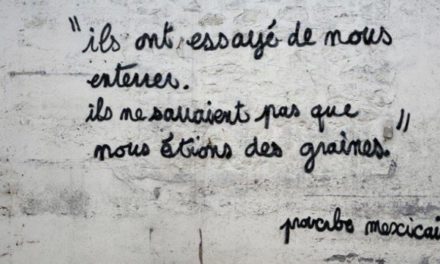 "ils ont essayé de nous
enterrer.
ils ne savaient pas que
nous étions des graines."
proverbe mexicai